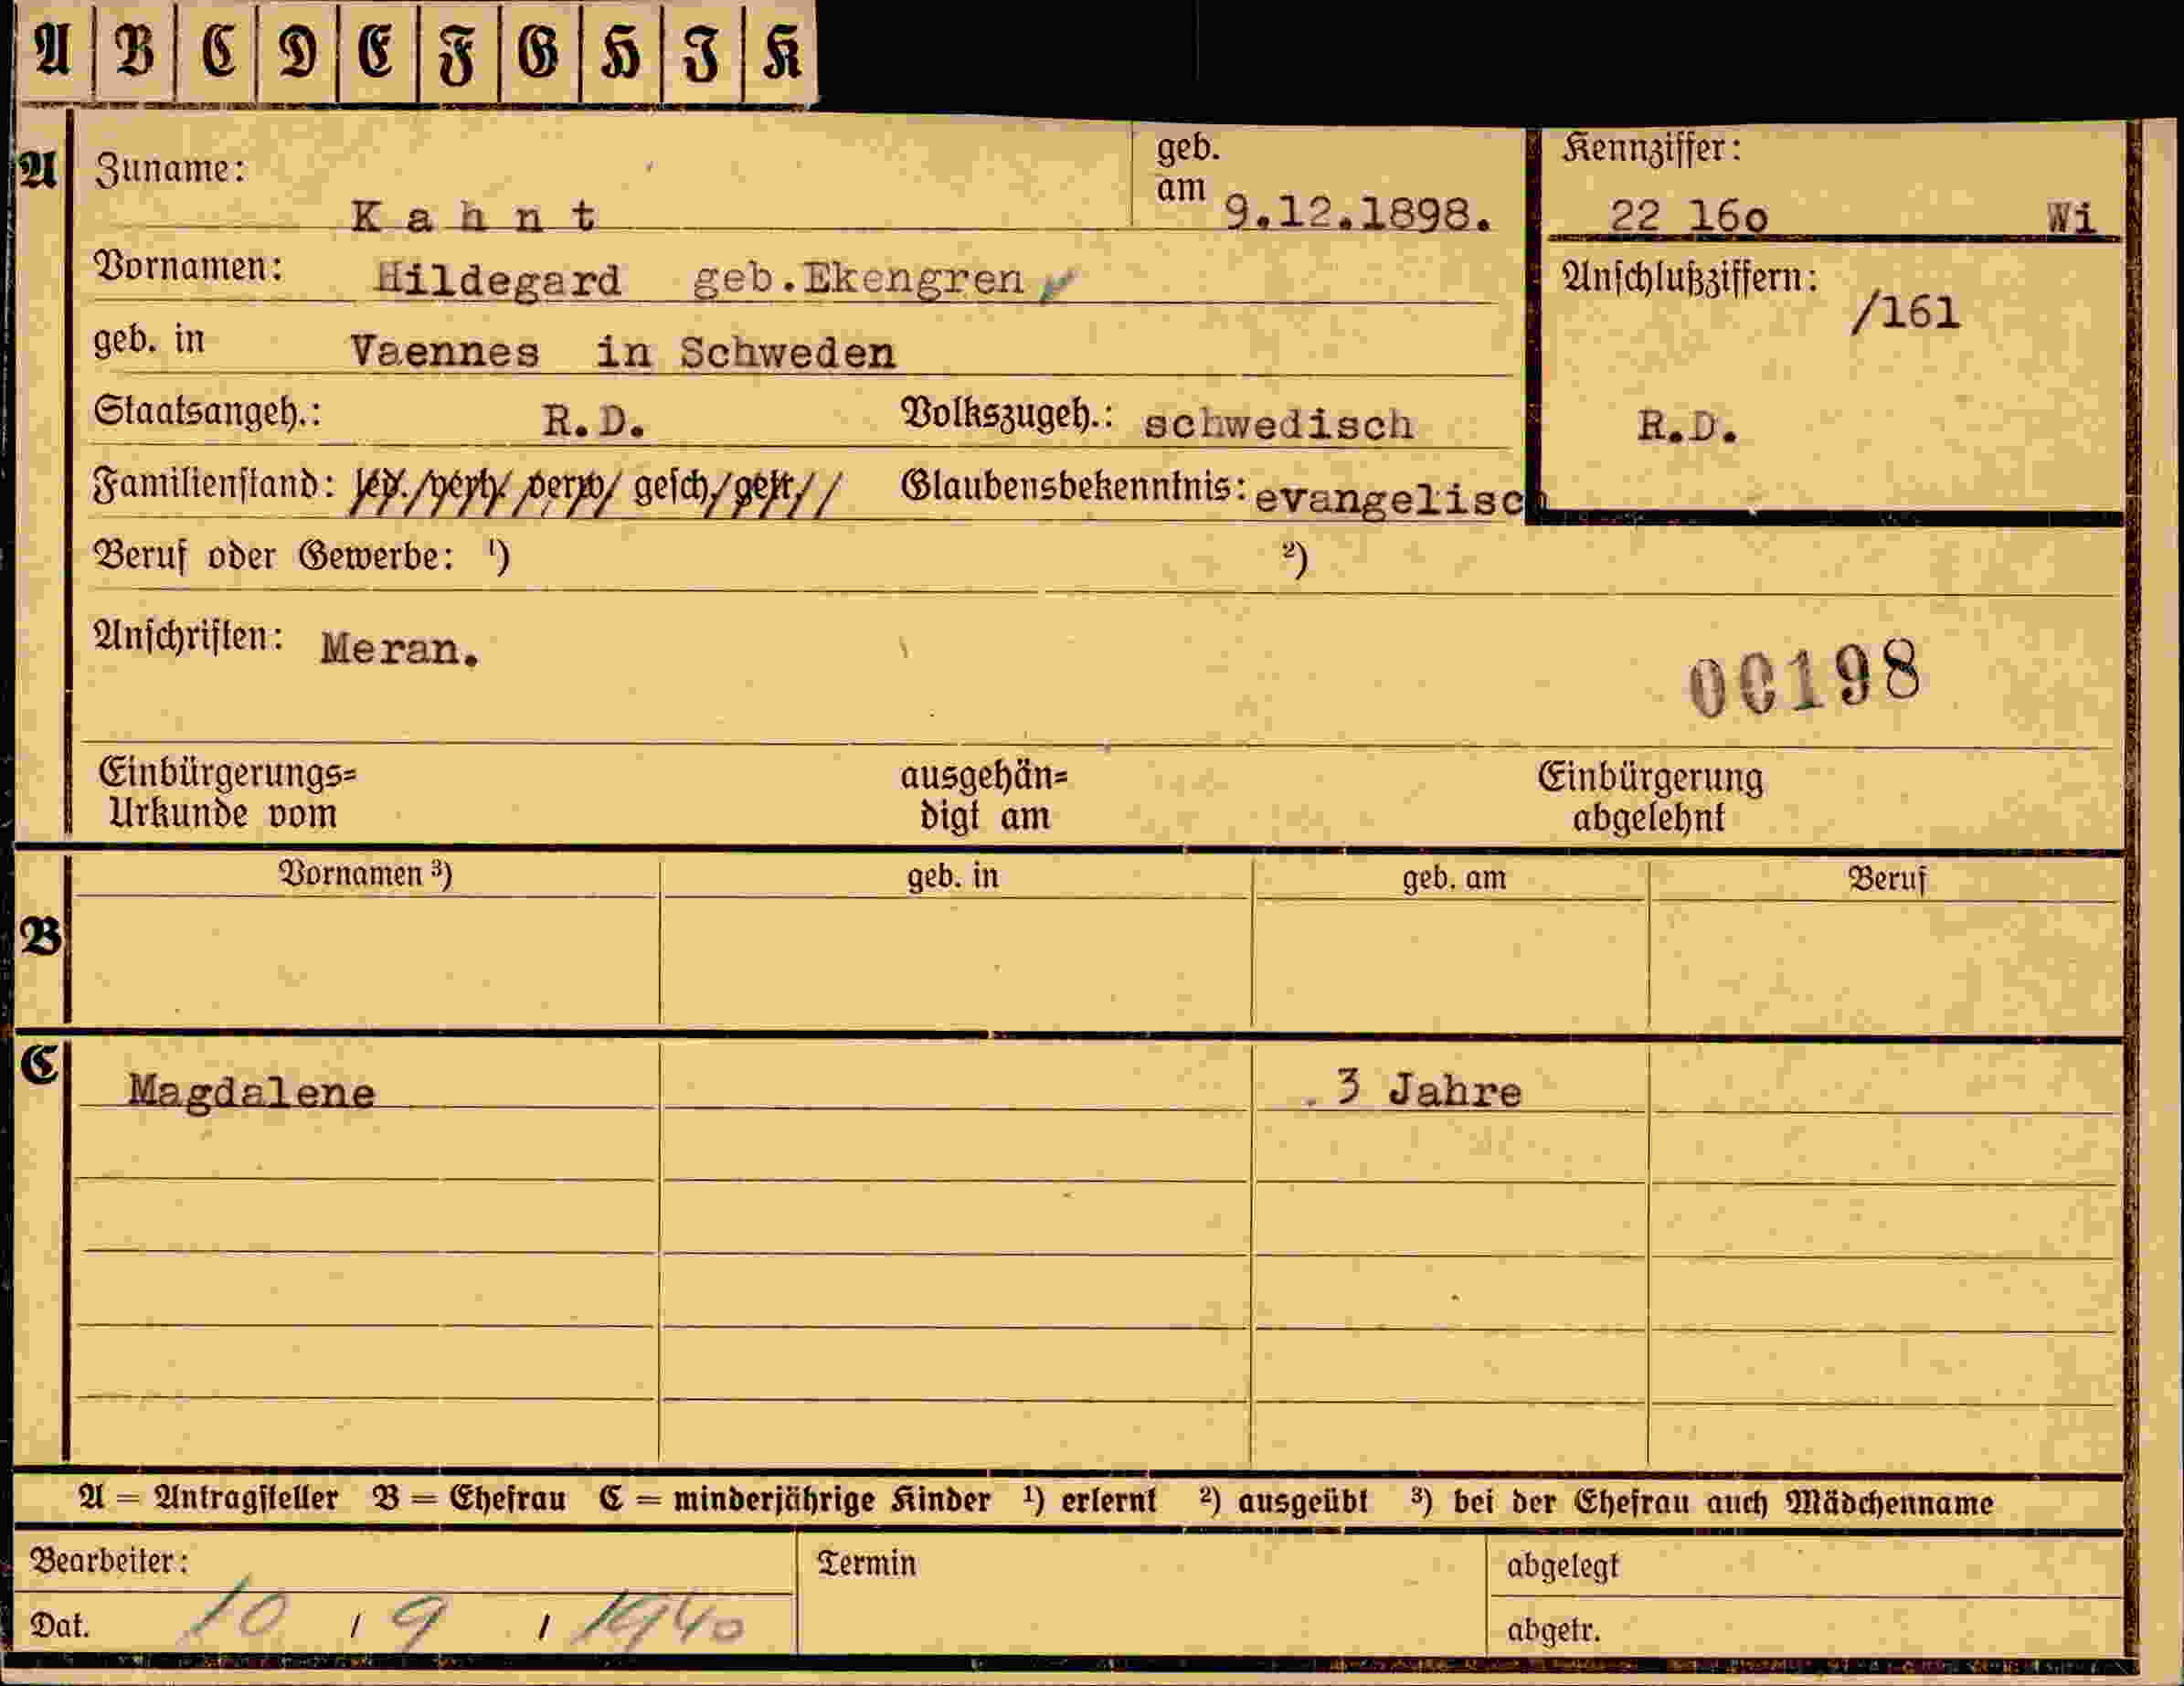 A B C D E F G H I K
A Zuname: Kahnt geb. am 9.12.1898. Kennziffer: 22 16o Wi
Vornamen: Hildegard geb.Ekengren Anschlußziffern: /161
geb. in Vaennes in Schweden
Staatsangeh.: R.D. Volkszugeh.: schwedisch R.D.
Familienstand: led./verh./verw./gesch/getr. Glaubensbekenntnis: evangelisch
Beruf oder Gewerbe: ¹) ²)
Anschriften: Meran.
00198
Einbürgerungs= ausgehän= Einbürgerung
Urkunde vom digt am abgelehnt
Vornamen ³) geb. in geb. am Beruf
B
C Magdalene 3 Jahre
A = Antragsteller B = Ehefrau C = minderjährige Kinder ¹) erlernt ²) ausgeübt ³) bei der Ehefrau auch Mädchenname
Bearbeiter: Termin abgelegt
Dat. 10 / 9 / 1940 abgetr.